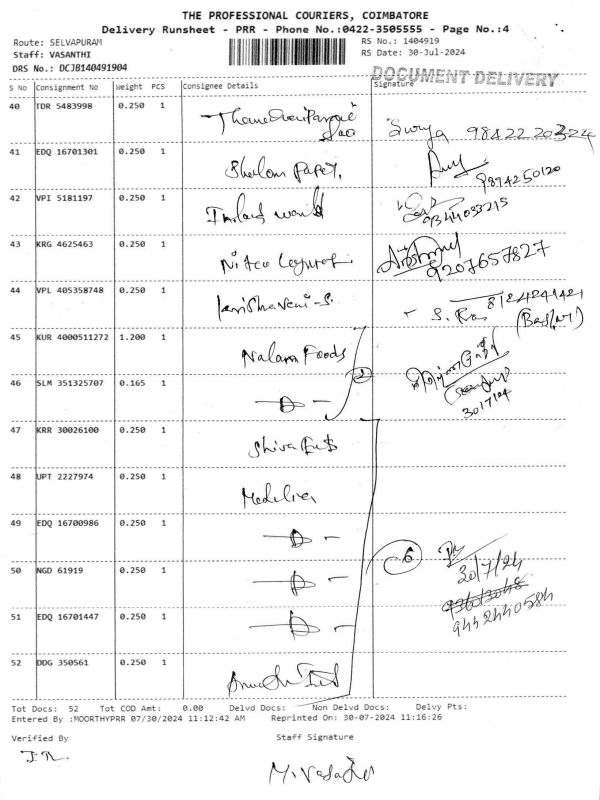 THE PROFESSIONAL COURIERS, COIMBATORE
Delivery Runsheet - PRR - Phone No.:0422-3505555 - Page No.:4
Route: SELVAPURAM RS No.: 1404919
Staff: VASANTHI RS Date: 30-Jul-2024
DRS No.: DCJB140491904 DOCUMENT DELIVERY
S No Consignment No Weight PCS Consignee Details Signature
40 TDR 5483998 0.250 1 Surya 98422 20324
41 EDQ 16701301 0.250 1 Shalom Paper,
9894250120
42 VPI 5181197 0.250 1 world
9344033215
43 KRG 4625463 0.250 1 Nitco
9207657827
44 VPL 405358748 0.250 1 8124241421
S.
45 KUR 4000511272 1.200 1 Nalam Foods
46 SLM 351325707 0.165 1 D - 2
30/7/24
47 KRR 30026100 0.250 1 Shiva
48 UPT 2227974 0.250 1
49 EDQ 16700986 0.250 1 D -
50 NGD 61919 0.250 1 D - 6 30/7/24
51 EDQ 16701447 0.250 1 D - 9442440584
52 DDG 350561 0.250 1
Tot Docs: 52 Tot COD Amt: 0.00 Delvd Docs: Non Delvd Docs: Delvy Pts:
Entered By :MOORTHYPRR 07/30/2024 11:12:42 AM Reprinted On: 30-07-2024 11:16:26
Verified By Staff Signature